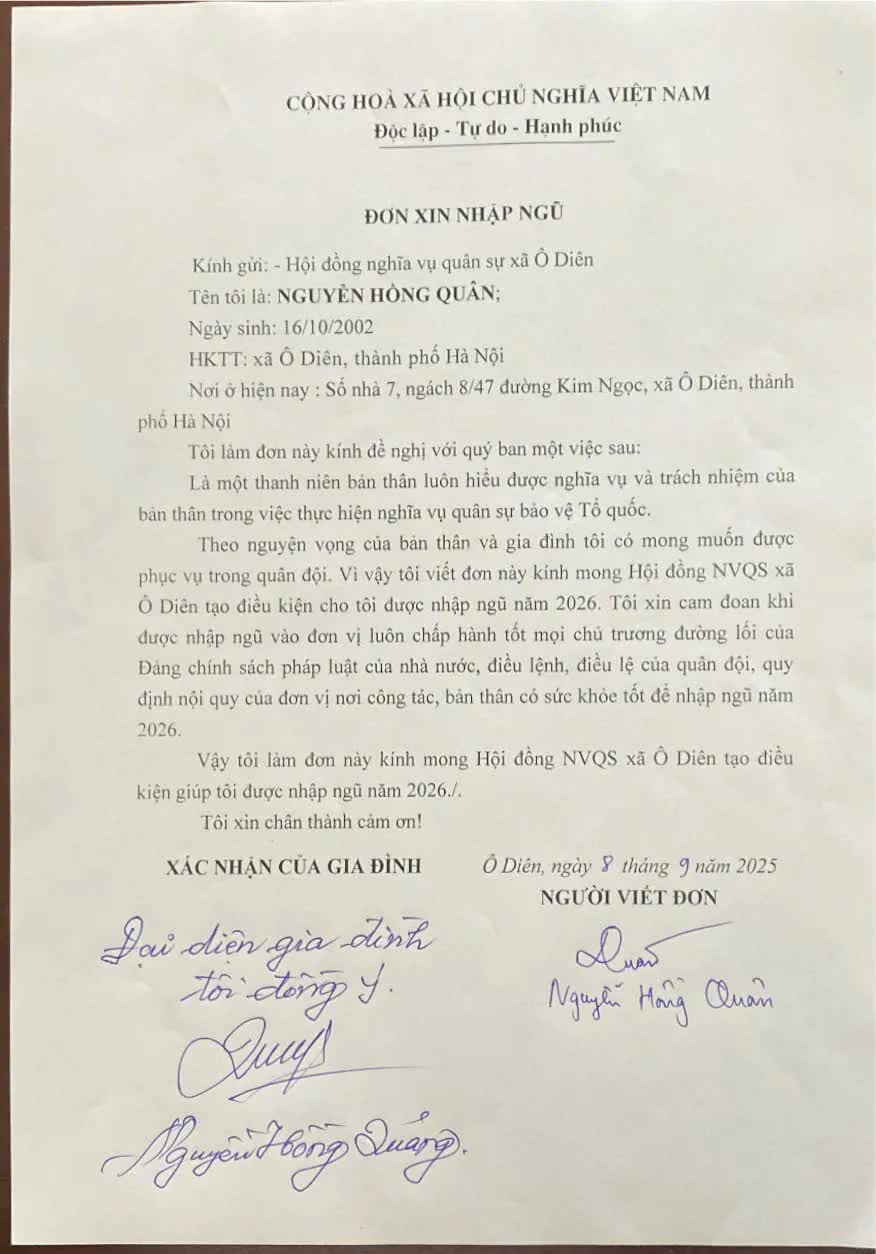 CỘNG HOÀ XÃ HỘI CHỦ NGHĨA VIỆT NAM
Độc lập - Tự do - Hạnh phúc
ĐƠN XIN NHẬP NGŨ
Kính gửi: - Hội đồng nghĩa vụ quân sự xã Ô Diên
Tên tôi là: NGUYỄN HỒNG QUÂN;
Ngày sinh: 16/10/2002
HKTT: xã Ô Diên, thành phố Hà Nội
Nơi ở hiện nay : Số nhà 7, ngách 8/47 đường Kim Ngọc, xã Ô Diên, thành
phố Hà Nội
Tôi làm đơn này kính đề nghị với quý ban một việc sau:
Là một thanh niên bản thân luôn hiểu được nghĩa vụ và trách nhiệm của
bản thân trong việc thực hiện nghĩa vụ quân sự bảo vệ Tổ quốc.
Theo nguyện vọng của bản thân và gia đình tôi có mong muốn được
phục vụ trong quân đội. Vì vậy tôi viết đơn này kính mong Hội đồng NVQS xã
Ô Diên tạo điều kiện cho tôi được nhập ngũ năm 2026. Tôi xin cam đoan khi
được nhập ngũ vào đơn vị luôn chấp hành tốt mọi chủ trương đường lối của
Đảng chính sách pháp luật của nhà nước, điều lệnh, điều lệ của quân đội, quy
định nội quy của đơn vị nơi công tác, bản thân có sức khỏe tốt để nhập ngũ năm
2026.
Vậy tôi làm đơn này kính mong Hội đồng NVQS xã Ô Diên tạo điều
kiện giúp tôi được nhập ngũ năm 2026./.
Tôi xin chân thành cảm ơn!
XÁC NHẬN CỦA GIA ĐÌNH
Ô Diên, ngày 8 tháng 9 năm 2025
NGƯỜI VIẾT ĐƠN
Đại diện gia đình
tôi đồng ý.
Quân
Nguyễn Hồng Quân
Nguyễn Hồng Quảng.